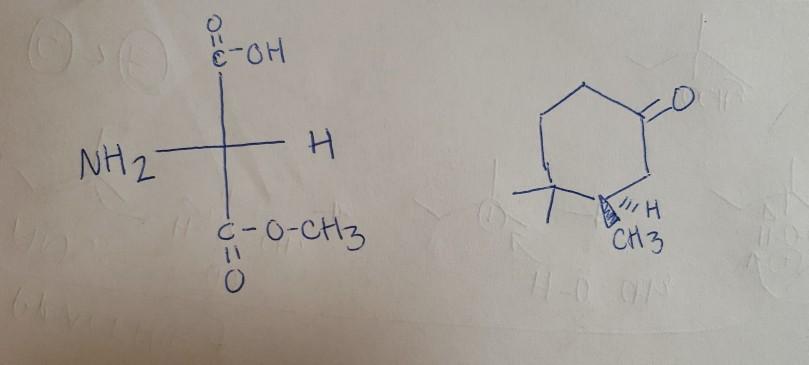 O
C-OH
NH2 H
C-O-CH3
O
O
H
CH3